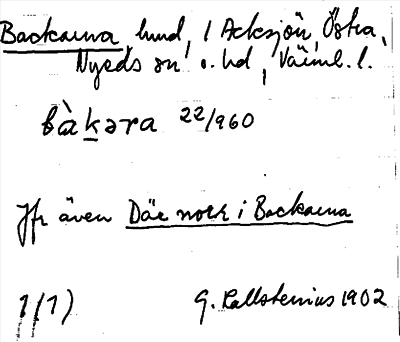 Backarna, lund, i Acksjön, Östra,
Nyeds sn o. hd, Värml. l.
bàkara 22/960
Jfr även Där norr i Backarna
1(1) G. Kallstenius 1902